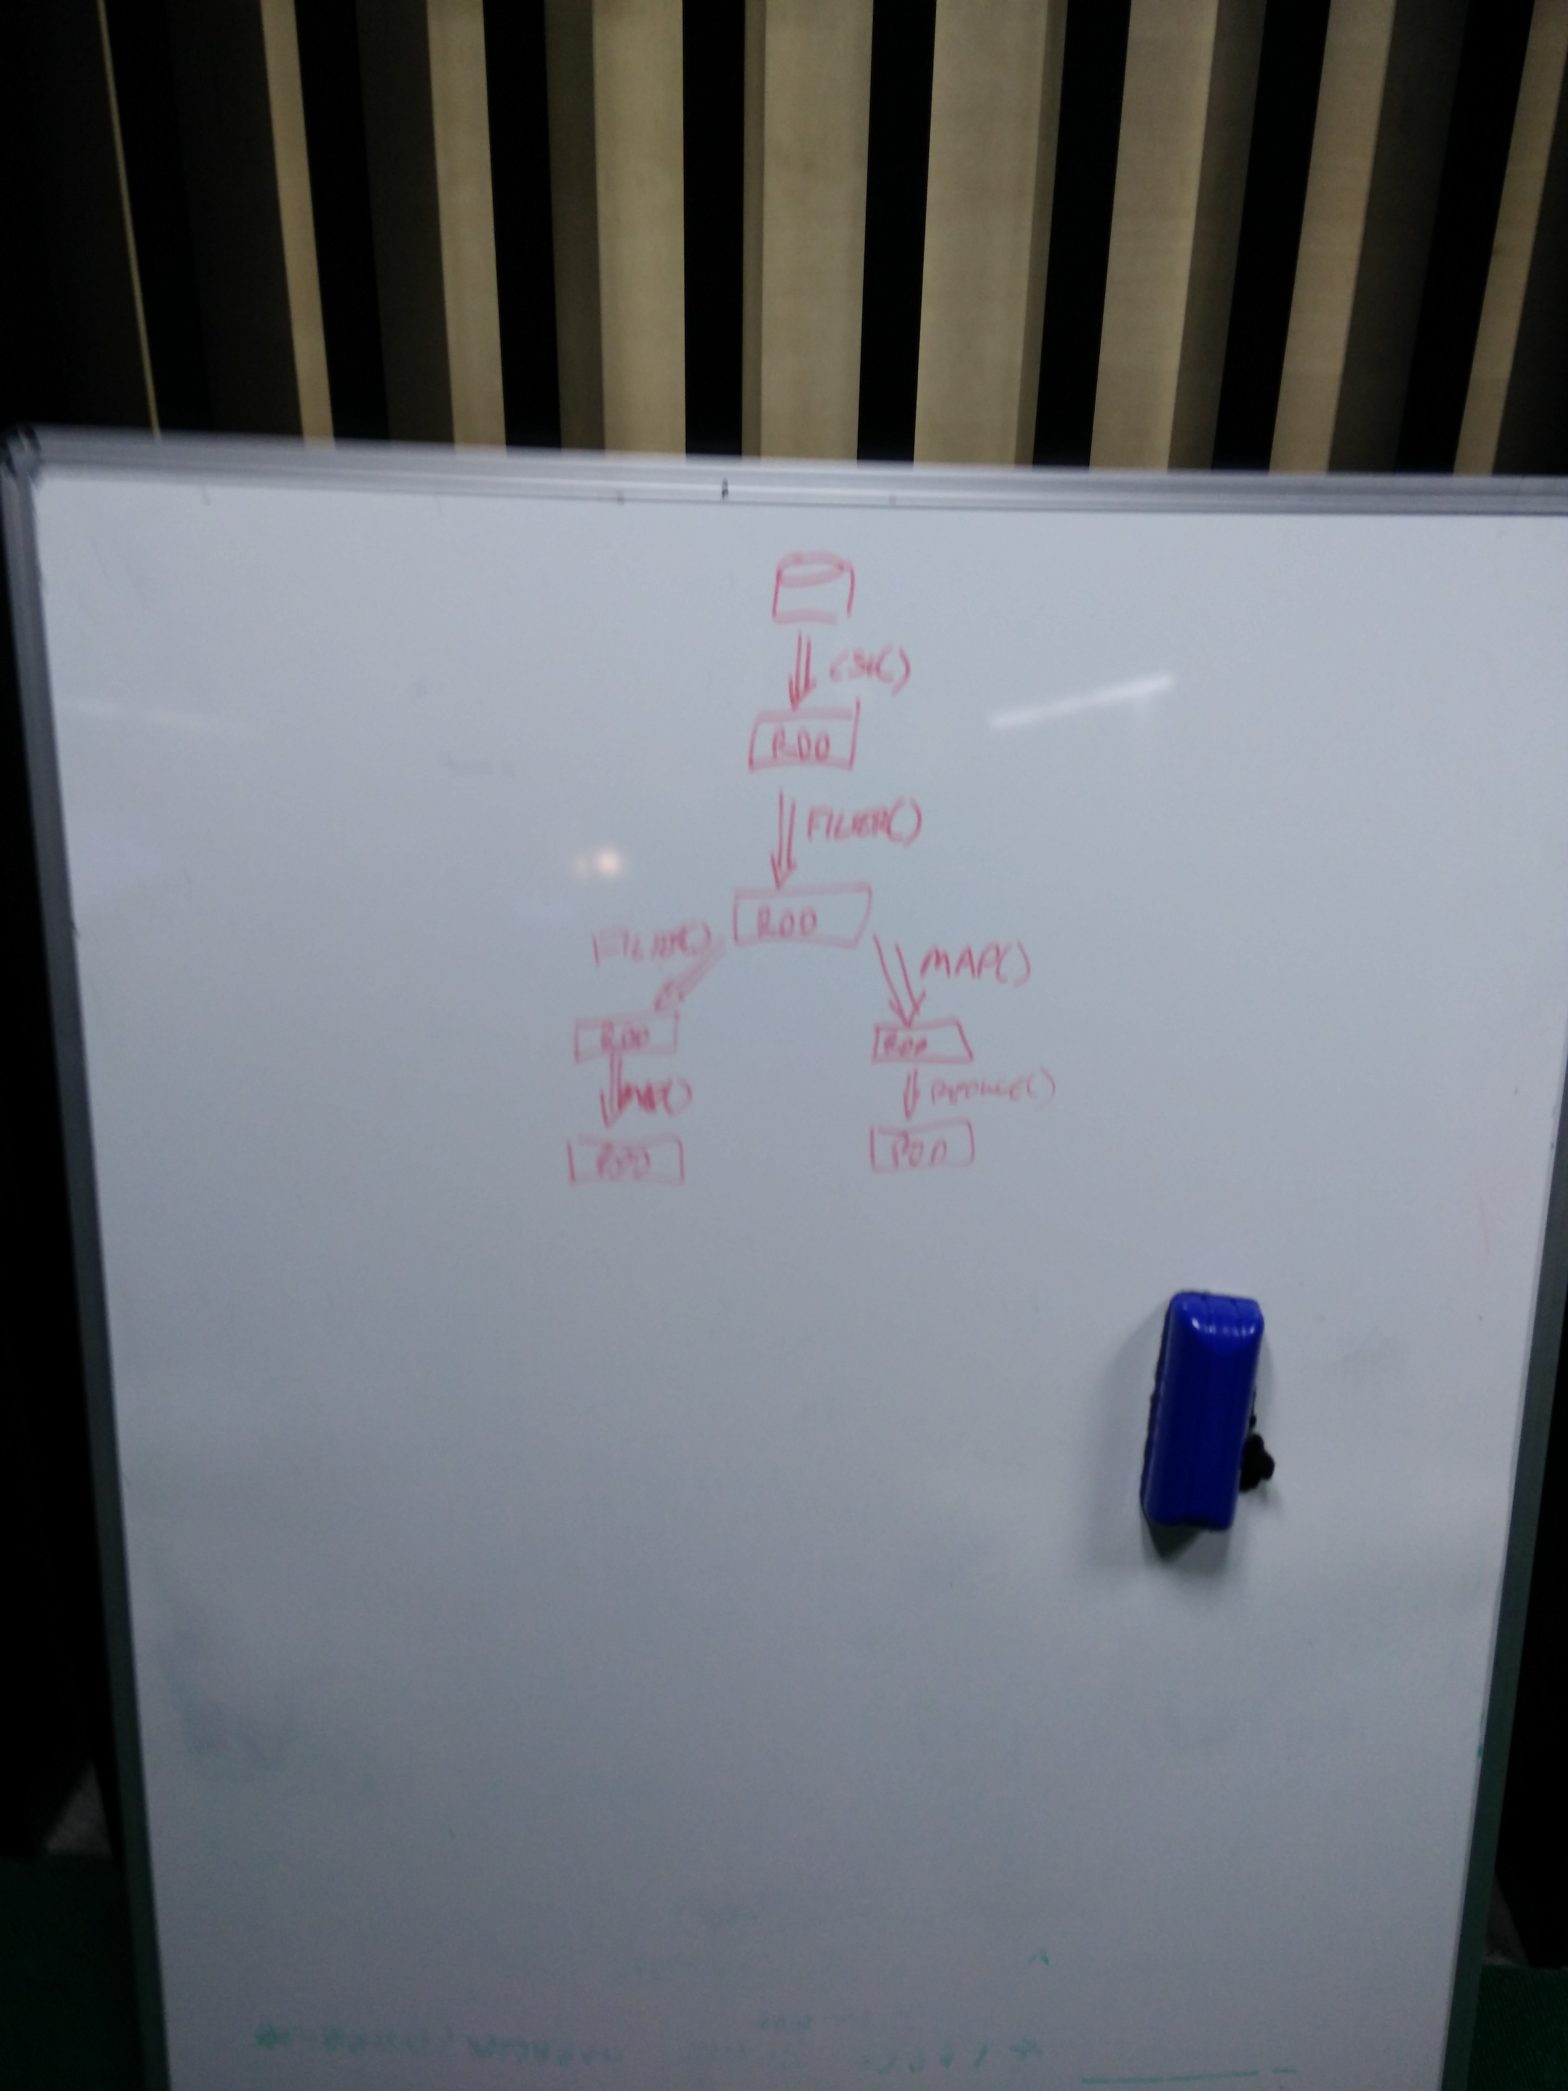 CSV()
RDD
FILTER()
RDD
FILTER()
MAP()
RDD
RDD
MAP()
REDUCE()
RDD
RDD